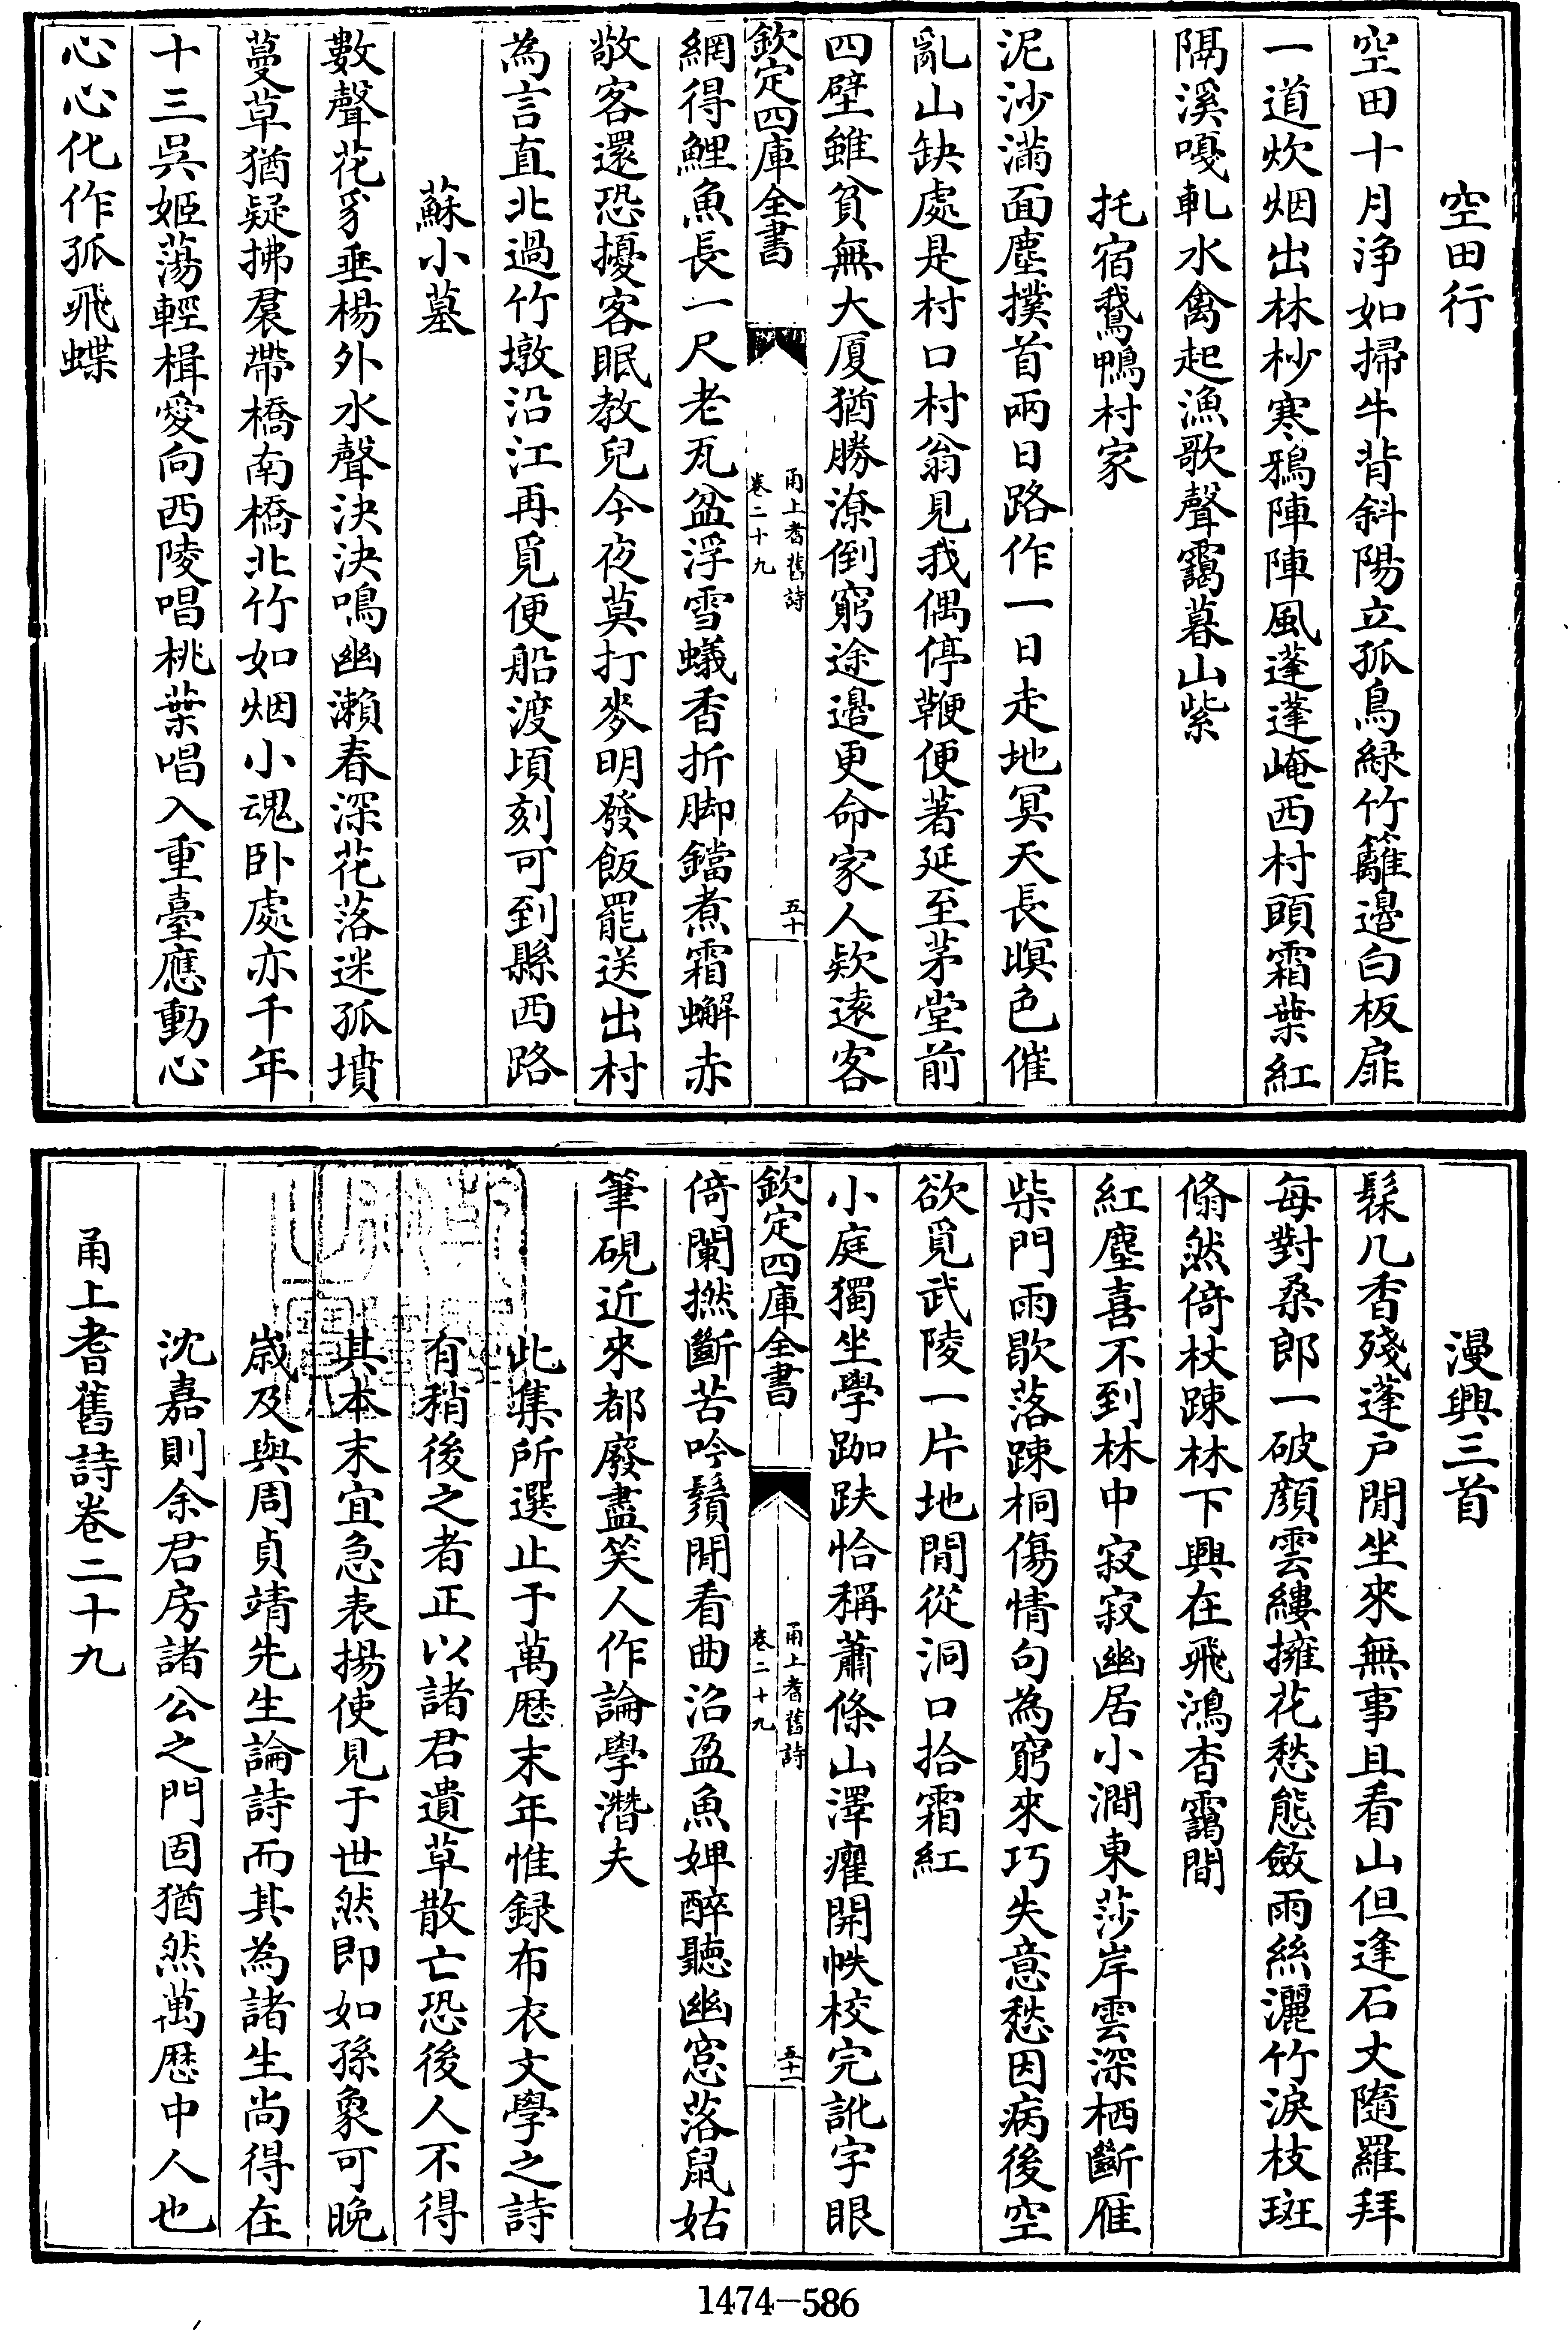 空田行
空田十月浄如掃牛背斜陽立孤鳥緑竹籬邉白板扉
一道炊烟出林杪寒鴉陣陣風蓬蓬崦西村頭霜葉紅
隔溪嘎軋水禽起漁歌聲靄暮山紫
托宿鵞鴨村家
泥沙滿面塵撲首兩日路作一日走地冥天長暝色催
亂山缺處是村口村翁見我偶停鞭便著延至茅堂前
四壁雖貧無大厦猶勝潦倒窮途邉更命家人欵逺客
欽定四庫全書
甬上耆舊詩
卷二十九
五十
網得鯉魚長一尺老瓦盆浮雪蟻香折脚鐺煮霜蠏赤
敬客還恐擾客眠教兒今夜莫打麥明發飯罷送出村
為言直北過竹墩沿江再覓便船渡頃刻可到縣西路
蘇小墓
數聲花豸垂楊外水聲決決鳴幽瀨春深花落迷孤墳
蔓草猶疑拂裠帶橋南橋北竹如烟小魂卧處亦千年
十三吳姬蕩輕楫愛向西陵唱桃葉唱入重臺應動心
心心化作孤飛蝶
漫興三首
髹几香殘蓬户閒坐來無事且看山但逢石丈隨羅拜
每對桑郎一破顔雲縷擁花愁態斂雨絲灑竹淚枝斑
翛然倚杖踈林下興在飛鴻杳靄間
紅塵喜不到林中寂寂幽居小澗東莎岸雲深栖斷雁
柴門雨歇落踈桐傷情句為窮來巧失意愁因病後空
欲覓武陵一片地閒從洞口拾霜紅
小庭獨坐學跏趺恰稱蕭條山澤癯開帙校完訛字眼
欽定四庫全書
甬上耆舊詩
卷二十九
五十一
倚闌撚斷苦吟鬚閒看曲沼盈魚婢醉聽幽窓落鼠姑
筆硯近來都廢盡笑人作論學潛夫
此集所選止于萬厯末年惟録布衣文學之詩
有稍後之者正以諸君遺草散亡恐後人不得
其本末宜急表揚使見于世然即如孫象可晚
歳及與周貞靖先生論詩而其為諸生尚得在
沈嘉則余君房諸公之門固猶然萬厯中人也
甬上耆舊詩卷二十九
1474-586